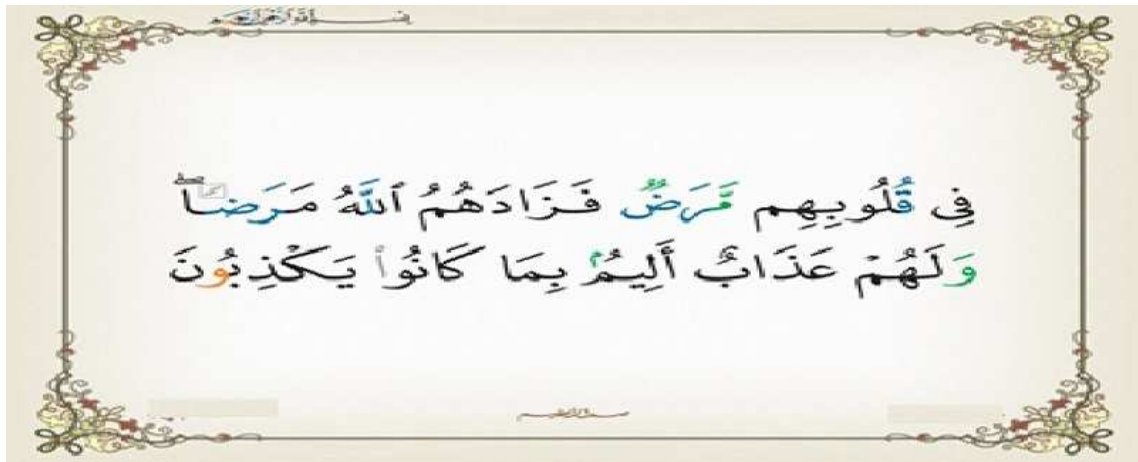 بِسْمِ ٱللَّهِ ٱلرَّحْمَٰنِ ٱلرَّحِيمِ
فِى قُلُوبِهِم مَّرَضٌ فَزَادَهُمُ ٱللَّهُ مَرَضًاۖ
وَلَهُمْ عَذَابٌ أَلِيمُۢ بِمَا كَانُوا۟ يَكْذِبُونَ